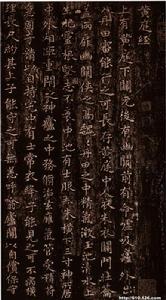 黃庭經
上有黃庭下有關元後有幽闕前有命門嘘吸廬外出
入丹田審能行之可長存黃庭中人衣朱衣關門壯籥
蓋兩扉幽闕俠之高巍巍丹田之中精氣微玉池清水上
生肥靈根堅志不衰中池有士服赤朱橫下三寸神所居
中外相距重閉之神廬之中務脩治玄癰氣管受精符
急固子精以自持宅中有士常衣絳子能見之可不病橫
理長尺約其上子能守之可無恙呼噏廬間以自償保守
http://610.126.com